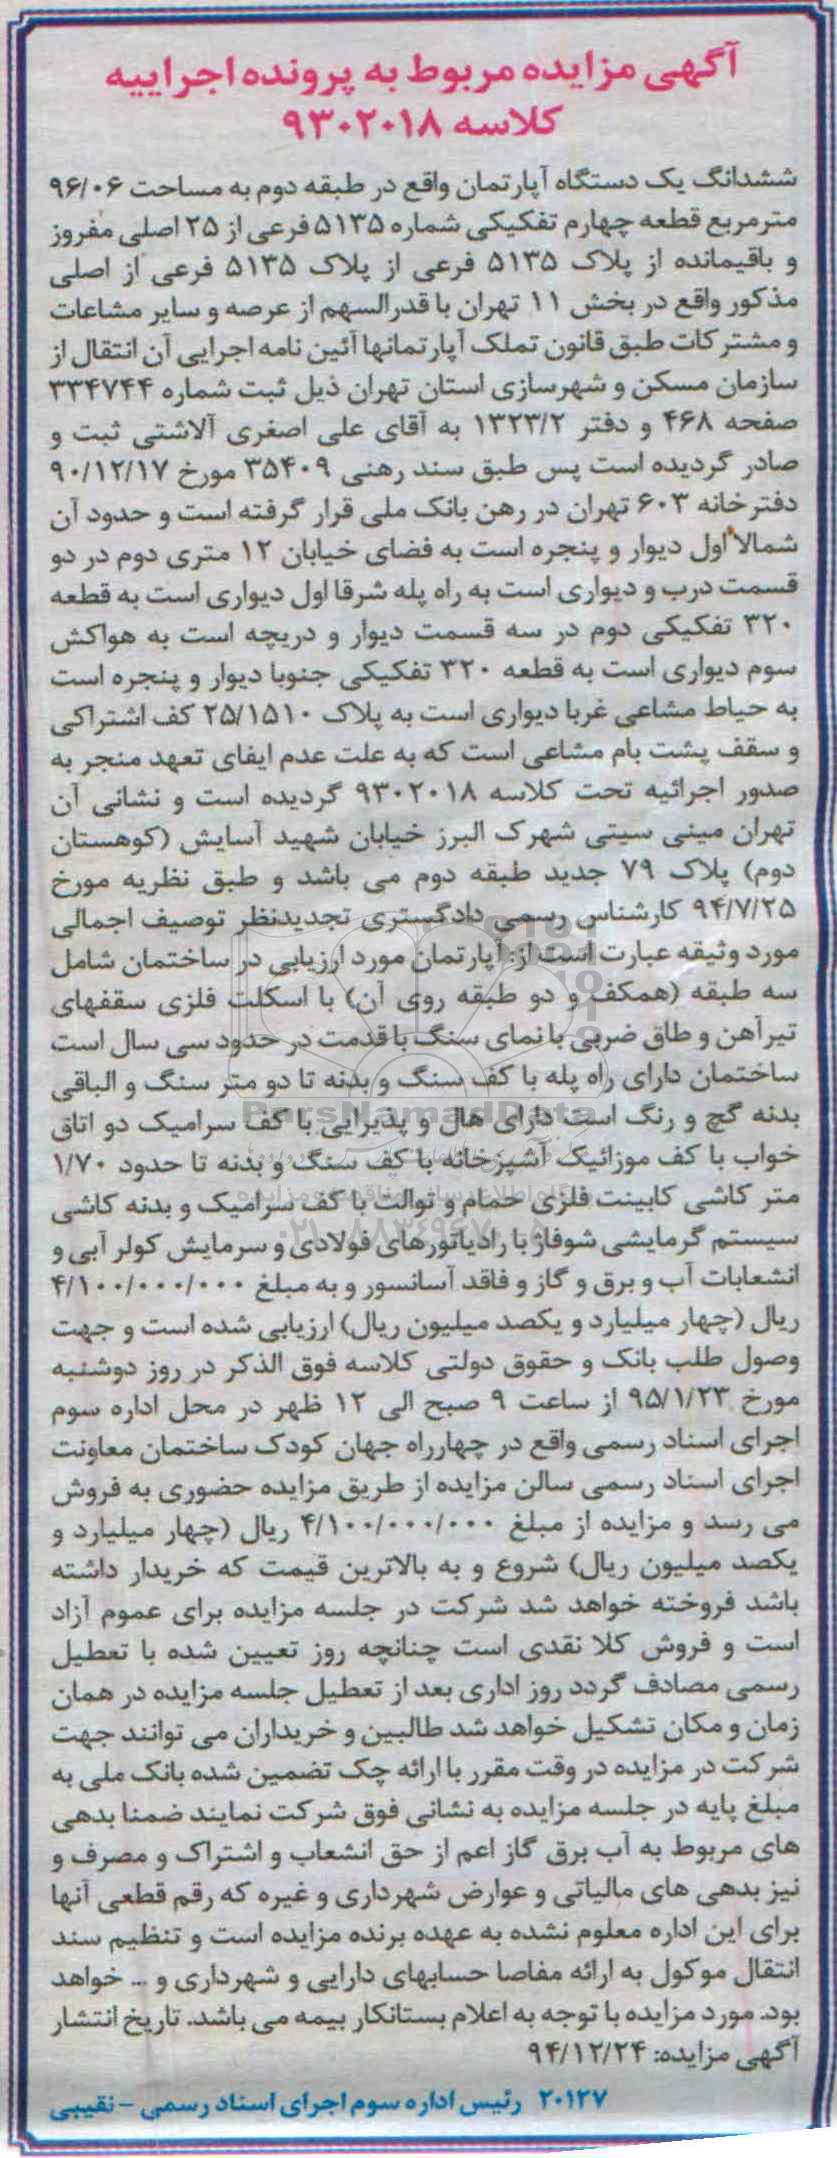 آگهی مزایده مربوط به پرونده اجراییه
کلاسه ۹۳۰۲۰۱۸
ششدانگ یک دستگاه آپارتمان واقع در طبقه دوم به مساحت ۹۶/۰۶
مترمربع قطعه چهارم تفکیکی شماره ۵۱۳۵ فرعی از ۲۵ اصلی مفروز
و باقیمانده از پلاک ۵۱۳۵ فرعی از پلاک ۵۱۳۵ فرعی از اصلی
مذکور واقع در بخش ۱۱ تهران با قدرالسهم از عرصه و سایر مشاعات
و مشترکات طبق قانون تملک آپارتمانها آئین نامه اجرایی آن انتقال از
سازمان مسکن و شهرسازی استان تهران ذیل ثبت شماره ۳۳۴۷۴۴
صفحه ۴۶۸ و دفتر ۱۳۲۳/۲ به آقای علی اصغری آلاشتی ثبت و
صادر گردیده است پس طبق سند رهنی ۳۵۴۰۹ مورخ ۹۰/۱۲/۱۷
دفترخانه ۶۰۳ تهران در رهن بانک ملی قرار گرفته است و حدود آن
شمالا اول دیوار و پنجره است به فضای خیابان ۱۲ متری دوم در دو
قسمت درب و دیواری است به راه پله شرقا اول دیواری است به قطعه
۳۲۰ تفکیکی دوم در سه قسمت دیوار و دریچه است به هواکش
سوم دیواری است به قطعه ۳۲۰ تفکیکی جنوبا دیوار و پنجره است
به حیاط مشاعی غربا دیواری است به پلاک ۲۵/۱۵۱۰ کف اشتراکی
و سقف پشت بام مشاعی است که به علت عدم ایفای تعهد منجر به
صدور اجرائیه تحت کلاسه ۹۳۰۲۰۱۸ گردیده است و نشانی آن
تهران مینی سیتی شهرک البرز خیابان شهید آسایش (کوهستان
دوم) پلاک ۷۹ جدید طبقه دوم می باشد و طبق نظریه مورخ
۹۴/۷/۲۵ کارشناس رسمی دادگستری تجدیدنظر توصیف اجمالی
مورد وثیقه عبارت است از: آپارتمان مورد ارزیابی در ساختمان شامل
سه طبقه (همکف و دو طبقه روی آن) با اسکلت فلزی سقفهای
تیرآهن و طاق ضربی با نمای سنگ با قدمت در حدود سی سال است
ساختمان دارای راه پله با کف سنگ و بدنه تا دو متر سنگ و الباقی
بدنه گچ و رنگ است دارای هال و پذیرایی با کف سرامیک دو اتاق
خواب با کف موزائیک آشپزخانه با کف سنگ و بدنه تا حدود ۱/۷۰
متر کاشی کابینت فلزی حمام و توالت با کف سرامیک و بدنه کاشی
سیستم گرمایشی شوفاژ با رادیاتورهای فولادی و سرمایش کولر آبی و
انشعابات آب و برق و گاز و فاقد آسانسور و به مبلغ ۴/۱۰۰/۰۰۰/۰۰۰
ریال (چهار میلیارد و یکصد میلیون ریال) ارزیابی شده است و جهت
وصول طلب بانک و حقوق دولتی کلاسه فوق الذکر در روز دوشنبه
مورخ ۹۵/۱/۲۳ از ساعت ۹ صبح الی ۱۲ ظهر در محل اداره سوم
اجرای اسناد رسمی واقع در چهارراه جهان کودک ساختمان معاونت
اجرای اسناد رسمی سالن مزایده از طریق مزایده حضوری به فروش
می رسد و مزایده از مبلغ ۴/۱۰۰/۰۰۰/۰۰۰ ریال (چهار میلیارد و
یکصد میلیون ریال) شروع و به بالاترین قیمت که خریدار داشته
باشد فروخته خواهد شد شرکت در جلسه مزایده برای عموم آزاد
است و فروش کلا نقدی است چنانچه روز تعیین شده با تعطیل
رسمی مصادف گردد روز اداری بعد از تعطیل جلسه مزایده در همان
زمان و مکان تشکیل خواهد شد طالبین و خریداران می توانند جهت
شرکت در مزایده در وقت مقرر با ارائه چک تضمین شده بانک ملی به
مبلغ پایه در جلسه مزایده به نشانی فوق شرکت نمایند ضمنا بدهی
های مربوط به آب برق گاز اعم از حق انشعاب و اشتراک و مصرف و
نیز بدهی های مالیاتی و عوارض شهرداری و غیره که رقم قطعی آنها
برای این اداره معلوم نشده به عهده برنده مزایده است و تنظیم سند
انتقال موکول به ارائه مفاصا حسابهای دارایی و شهرداری و ... خواهد
بود. مورد مزایده با توجه به اعلام بستانکار بیمه می باشد. تاریخ انتشار
آگهی مزایده: ۹۴/۱۲/۲۴
۲۰۱۲۷ رئیس اداره سوم اجرای اسناد رسمی - نقیبی
ParsNamadData